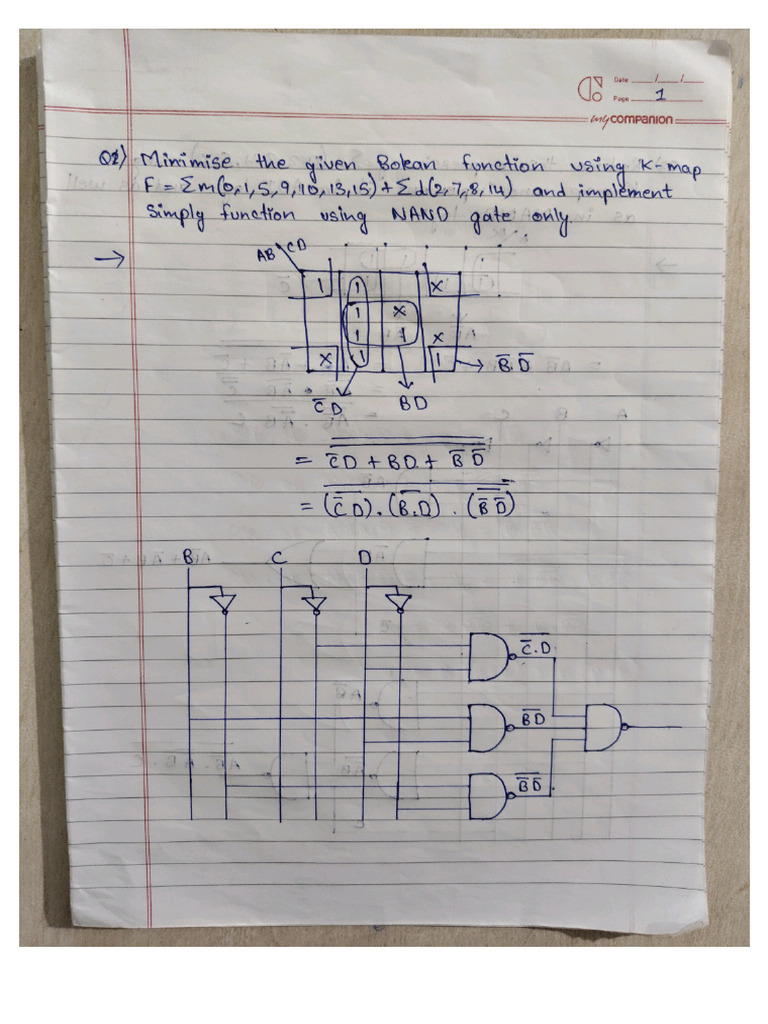 Date __/__/__
Page 1
mycompanion
Q1) Minimise the given Bolean function using K-map
F = Σm(0,1,5,9,10,13,15) + Σd(2,7,8,14) and implement
Simply function using NAND gate only.
→
AB CD
1 1 X
1 X
1 1 X
X 1 1 → B̅.D̅
C̅D BD
= \overline{\overline{C̅D + BD + B̅ D̅}}
= \overline{(\overline{C̅ D}).(\overline{B.D}).(\overline{B̅ D̅})}
B C D
\overline{C̅.D}
\overline{BD}
\overline{B̅ D̅}